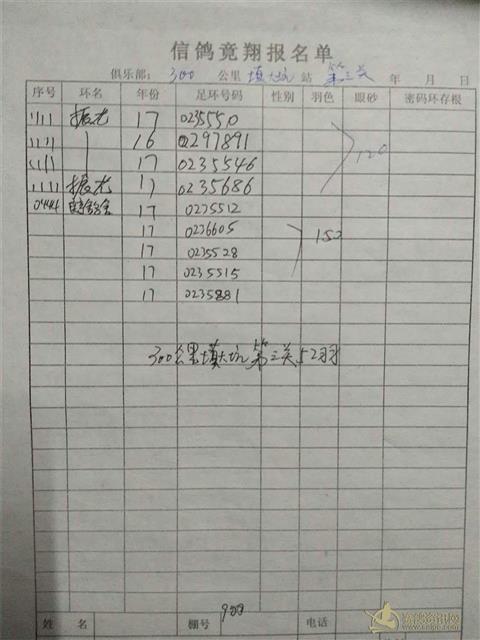 信鸽竟翔报名单
俱乐部: 300 公里 填大坑 站 第三关 年 月 日
序号 环名 年份 足环号码 性别 羽色 眼砂 密码环存根
1111 振龙 17 0235550
1111 16 0297891
1111 17 0235546
1111 振龙 17 0235686
120
0444 17 0235512
17 0236605
150
17 0235528
17 0235515
17 0235881
300公里填大坑第三关52羽
900
姓 名 棚号 电话